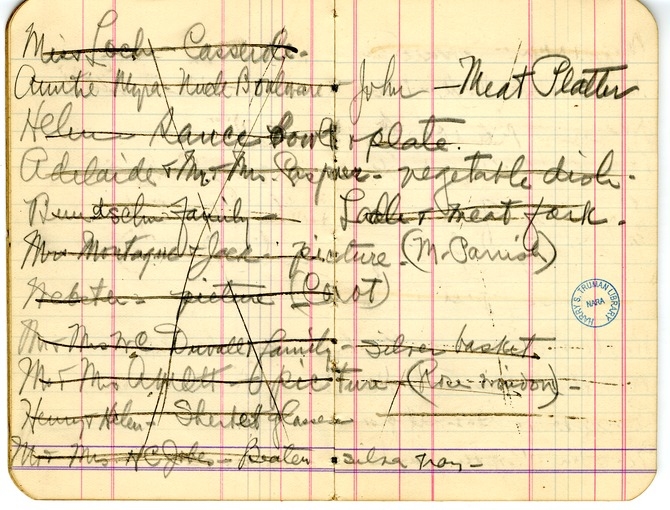 Miss Loch Casserole -
Auntie Myra - Nude Boulware - John - Meat Platter
Helen Sauce bowl & plate.
Adelaide & Mr. Mrs. - vegetable dish.
Family - Ladle & meat fork.
Mrs Montague & Jack - picture (M. Parrish)
Webster - picture (Corot)
Mr & Mrs Duvall & family - silver basket.
Mr & Mrs - picture - (Rose window) -
Henry & Helen - Sherbet glasses
Mr & Mrs - silver tray -
HARRY S. TRUMAN LIBRARY
NARA